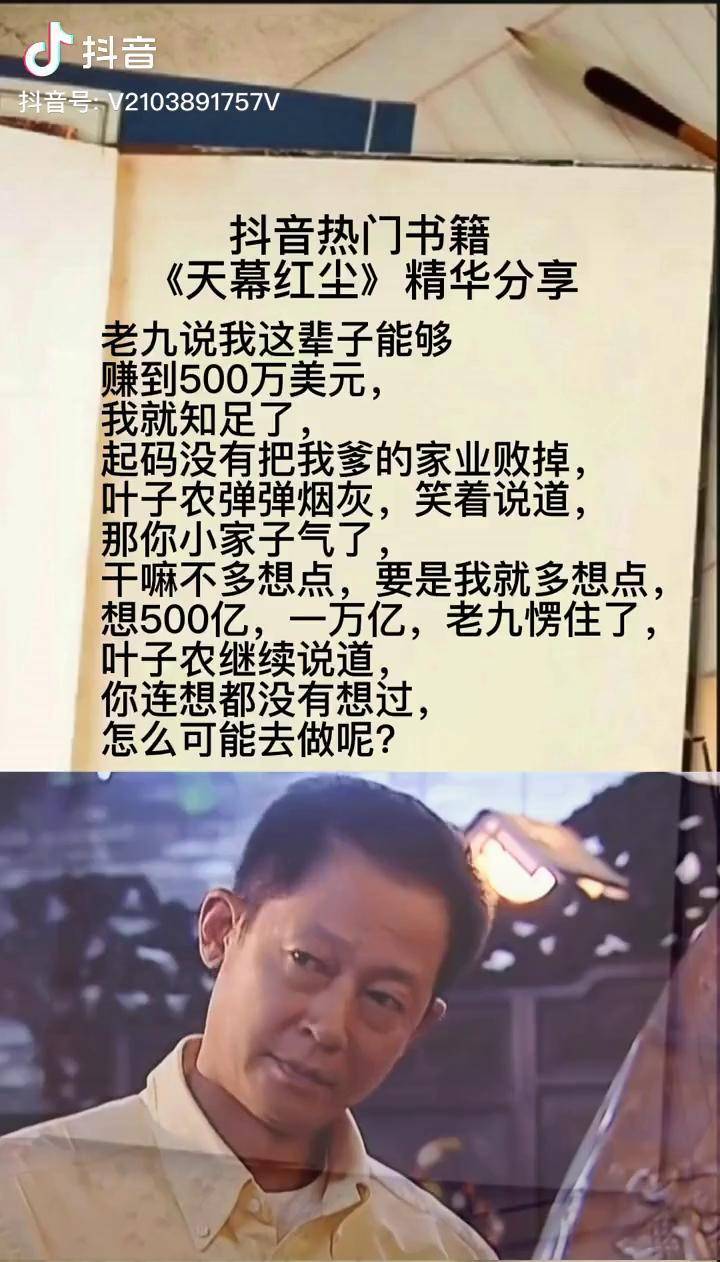 抖音
抖音号: V2103891757V
抖音热门书籍
《天幕红尘》精华分享
老九说我这辈子能够
赚到500万美元，
我就知足了，
起码没有把我爹的家业败掉，
叶子农弹弹烟灰，笑着说道，
那你小家子气了，
干嘛不多想点，要是我就多想点，
想500亿，一万亿，老九愣住了，
叶子农继续说道，
你连想都没有想过，
怎么可能去做呢？